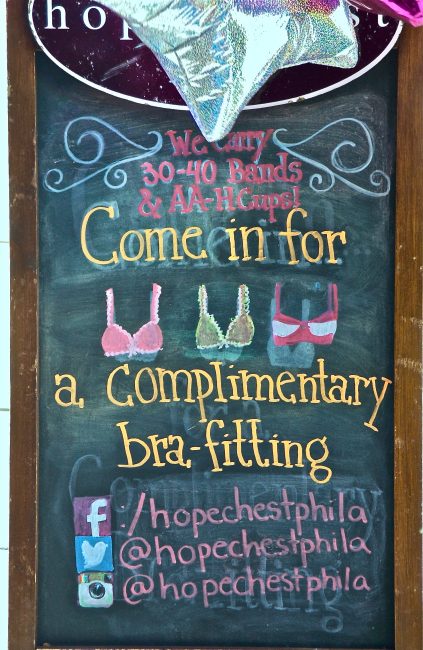 We Carry
30-40 Bands
& AA-H Cups!
Come in for
a complimentary
bra-fitting
f :/hopechestphila
@hopechestphila
@hopechestphila